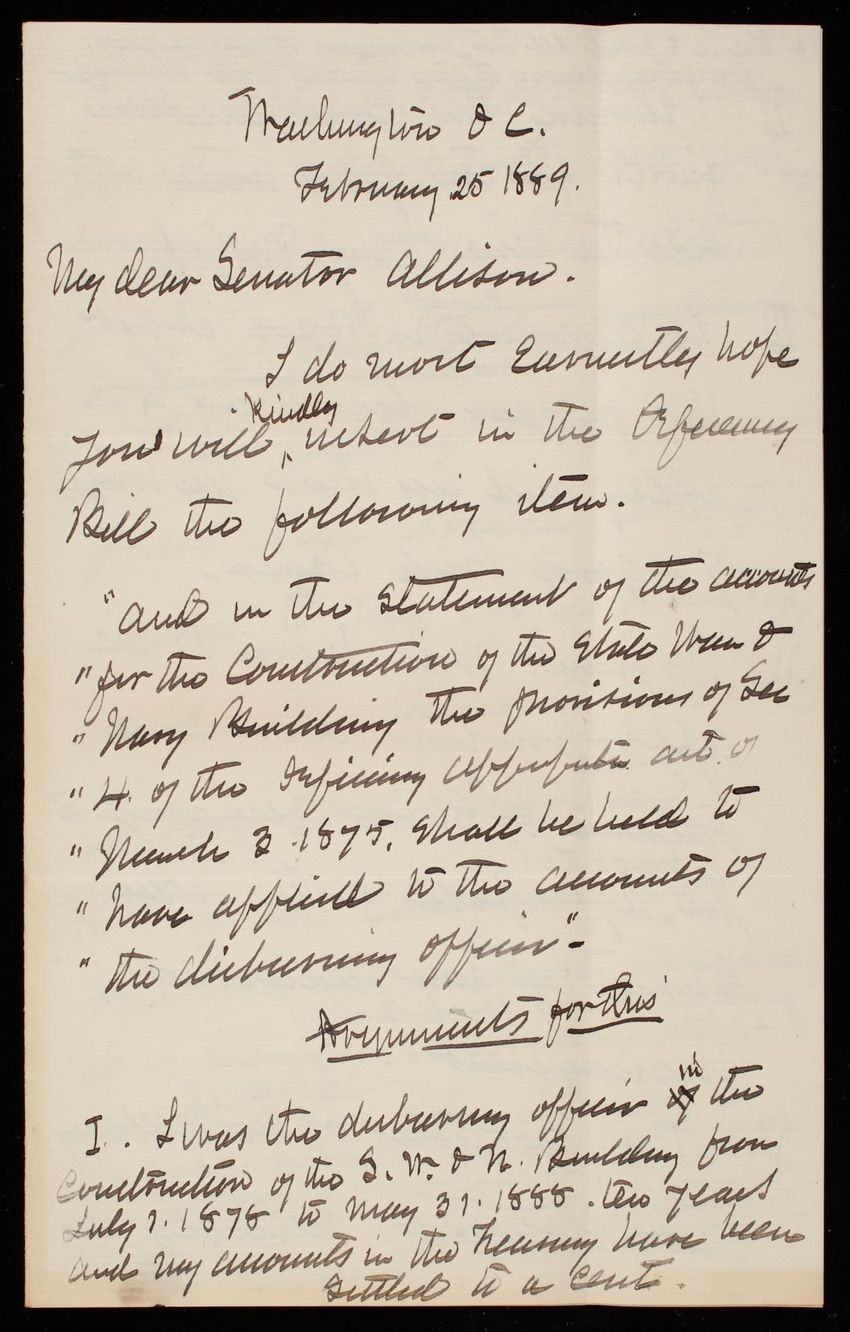 Washington D C.
February 25 1889.
My dear Senator Allison.
I do most earnestly hope
kindly
you will insert in the Deficiency
Bill the following item.
"and in the statement of the accounts
"for the Construction of the State War &
"Navy Building the provisions of Sec
"4. of the deficiency appropriation act of
"March 3. 1875, shall be held to
"have applied to the accounts of
"the disbursing officer"-
Arguments for this
I. I was the disbursing officer of in the
Construction of the S. W. & N. Building from
July 1. 1878 to May 31. 1888. ten years
and my accounts in the Treasury have been
settled to a cent.